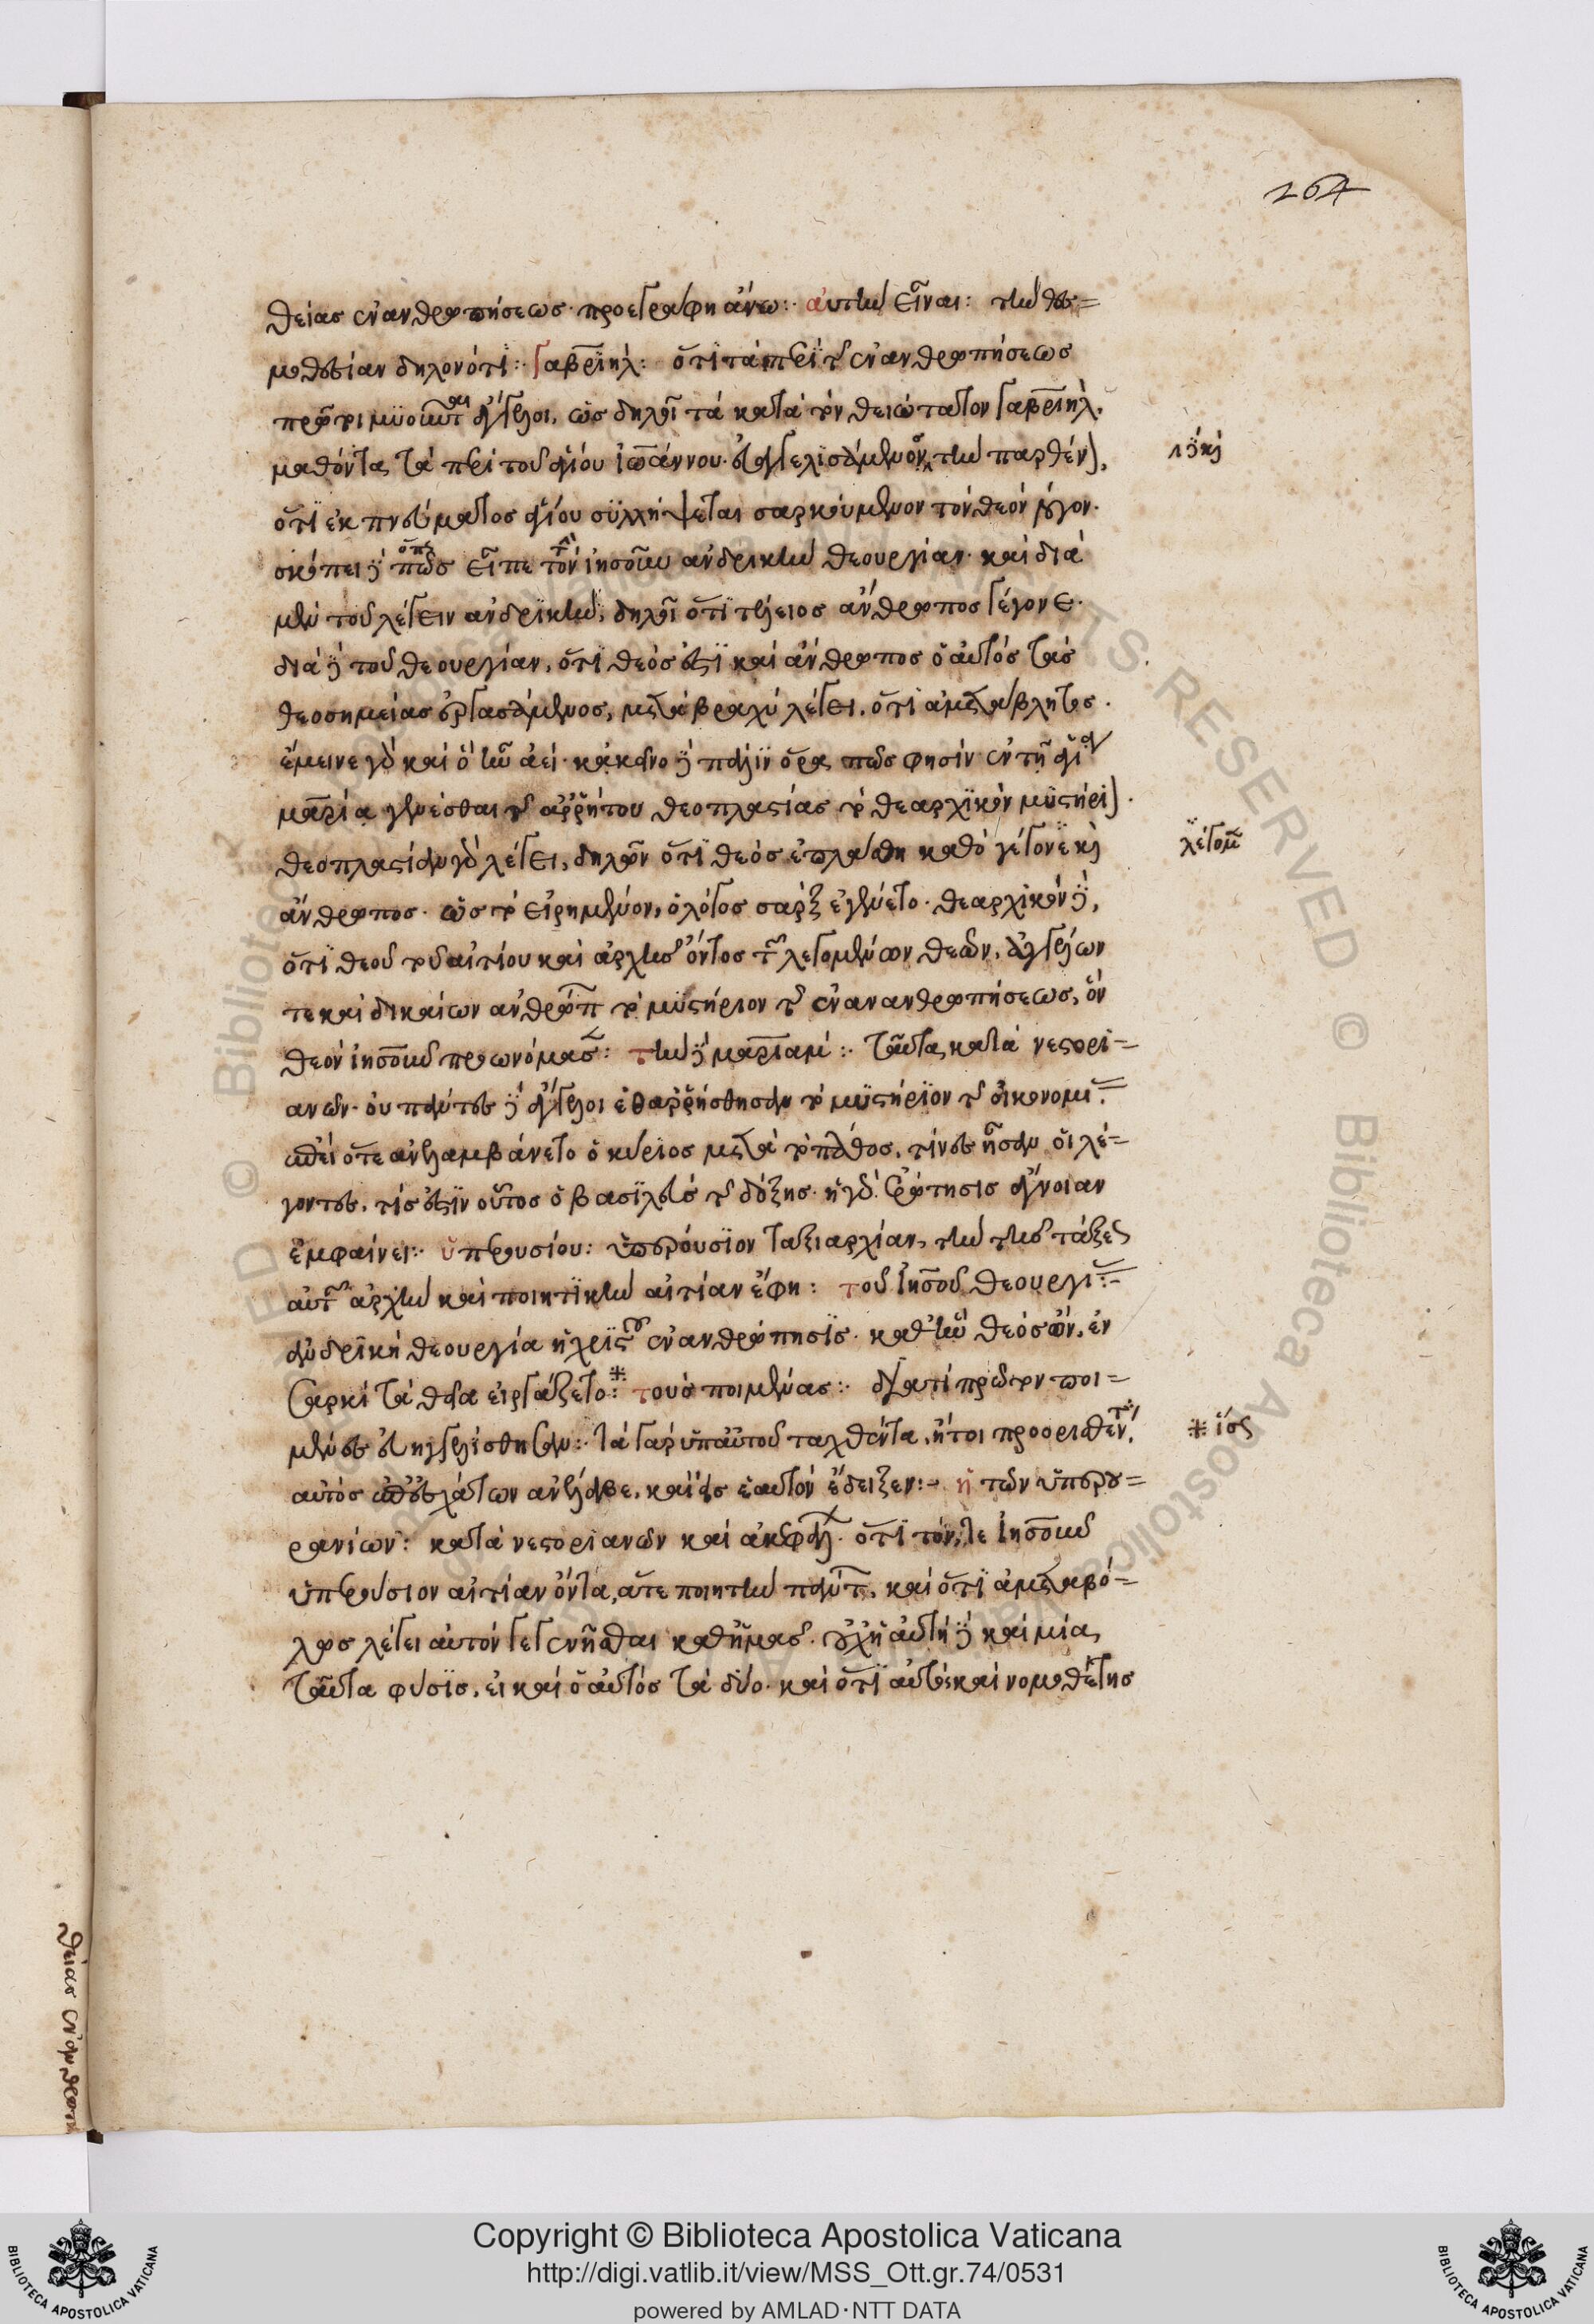 264
θείας ἐνανθρωπήσεως προεγράφη ἄνω: αὐτὴν εἶναι: τὴν θεσ=
μοθεσίαν δηλονότι: γαβριὴλ: ὅτι τὰ περὶ τῆς ἐνανθρωπήσεως
πρῶτοι μυοῦνται ἄγγελοι, ὡς δηλοῖ τὰ κατὰ τὸν θειώτατον γαβριὴλ.
μαθόντα τὰ περὶ τοῦ ἁγίου ἰωάννου. εὐαγγελισάμενον τὴν παρθένον,
λουκᾶ
ὅτι ἐκ πνεύματος ἁγίου συλλήψεται σαρκούμενον τὸν θεὸν λόγον.
σκόπει δὲ πῶς ὅπως εἶπε τὴν τὸν ἰησοῦν ἀνδρικὴν θεουργίαν. καὶ διὰ
μὲν τοῦ λέγειν ἀνδρικὴν, δηλοῖ ὅτι τέλειος ἄνθρωπος γέγονε.
διὰ δὲ τοῦ θεουργίαν, ὅτι θεός ἐστι καὶ ἄνθρωπος ὁ αὐτὸς τὰς
θεοσημείας ἐργασάμενος, μετὰ βραχὺ λέγει, ὅτι ἀμεταβλήτως.
ἔμεινε γὰρ καὶ ὃ ἦν ἀεί. κἀκεῖνο δὲ πάλιν ὅρα πῶς φησὶν ἐν τῇ ἁγίᾳ
μαρίᾳ γενέσθαι τῆς ἀρρήτου θεοπλαστίας τὸ θεαρχικὸν μυστήριον.
θεοπλαστίαν γὰρ λέγει, δηλῶν ὅτι θεὸς ἐπλάσθη καθὸ γέγονε καὶ
λέγομεν
ἄνθρωπος. ὡς τὸ εἰρημένον, ὁ λόγος σὰρξ ἐγένετο. θεαρχικὸν δὲ,
ὅτι θεοῦ τοῦ αἰτίου καὶ ἀρχῆς ὄντος τῶν λεγομένων θεῶν, ἀγγέλων
τε καὶ δικαίων ἀνθρώπων τὸ μυστήριον τῆς ἐνανανθρωπήσεως, ὃν
θεὸν ἰησοῦν προωνόμασε: τὴν δὲ μαριάμ: ταῦτα κατὰ νεστορι=
ανῶν. οὐ πάντες δὲ ἄγγελοι ἐθαρρήσθησαν τὸ μυστήριον τῆς οἰκονομίας.
ἐπεὶ ὅτε ἀνελαμβάνετο ὁ κύριος μετὰ τὸ πάθος, τίνες ἦσαν οἱ λέ=
γοντες, τίς ἐστιν οὗτος ὁ βασιλεὺς τῆς δόξης. ἡ γὰρ ἐρώτησις ἄγνοιαν
ἐμφαίνει: ὑπερουσίου: ὑπερούσιον ταξιαρχίαν, τὴν τῆς τάξεως
αὐτῶν ἀρχὴν καὶ ποιητικὴν αἰτίαν ἔφη: τοῦ ἰησοῦ θεουργίας:
ἀνδρικὴ θεουργία ἡ χριστοῦ ἐνανθρώπησις. καθ' ἣν θεὸς ὢν, ἐν
σαρκὶ τὰ θεῖα εἰργάζετο: τοὺς ποιμένας: διατί πρῶτον ποι=
μένες εὐηγγελίσθησαν: τὰ γὰρ ὑπ' αὐτοῦ ταχθέντα, ἤτοι προορισθέντα,
※ ἴσως
αὐτὸς ἀνέλαβε, καὶ εἰς ἑαυτὸν ἔδειξεν: ἢ τῶν ὑπερου=
ρανίων: κατὰ νεστοριανῶν καὶ ἀκεφάλων. ὅτι τόν, τε ἰησοῦν
ὑπερούσιον αἰτίαν ὄντα, ἅτε ποιητὴν πάντων, καὶ ὅτι ἀμεταβό=
λως λέγει αὐτὸν γεγενῆσθαι καθ' ἡμᾶς. οὐχὶ αὐτὴ δὲ καὶ μία
ταῦτα φύσις, εἰ καὶ ὁ αὐτὸς τὰ δύο. καὶ ὅτι αὐτὸς καὶ νομοθέτης
Copyright © Biblioteca Apostolica Vaticana
http://digi.vatlib.it/view/MSS_Ott.gr.74/0531
powered by AMLAD·NTT DATA